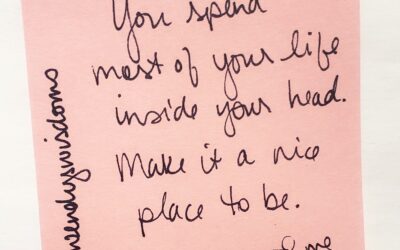 You spend
most of your life
inside your head.
Make it a nice
place to be.
wendyswisdoms